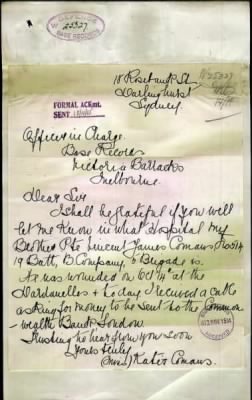 DEFENCE
25327
BASE RECORDS
18 Rosebank St
Darlinghurst
Sydney.
FORMAL ACKmt.
SENT
Officer in Charge
Base Records
Victoria Barracks
Melbourne.
Dear Sir
I shall be grateful if you will
let me know in what Hospital my
Brother Pte Vincent James Comans
19 Batt, B Company 5 Brigade is.
He was wounded on Oct at the
Dardanelles & to day I received a cable
asking for money to be sent to the Common-
wealth Bank London.
Trusting to hear from you soon
Yours truly
(Miss) Katie Comans.